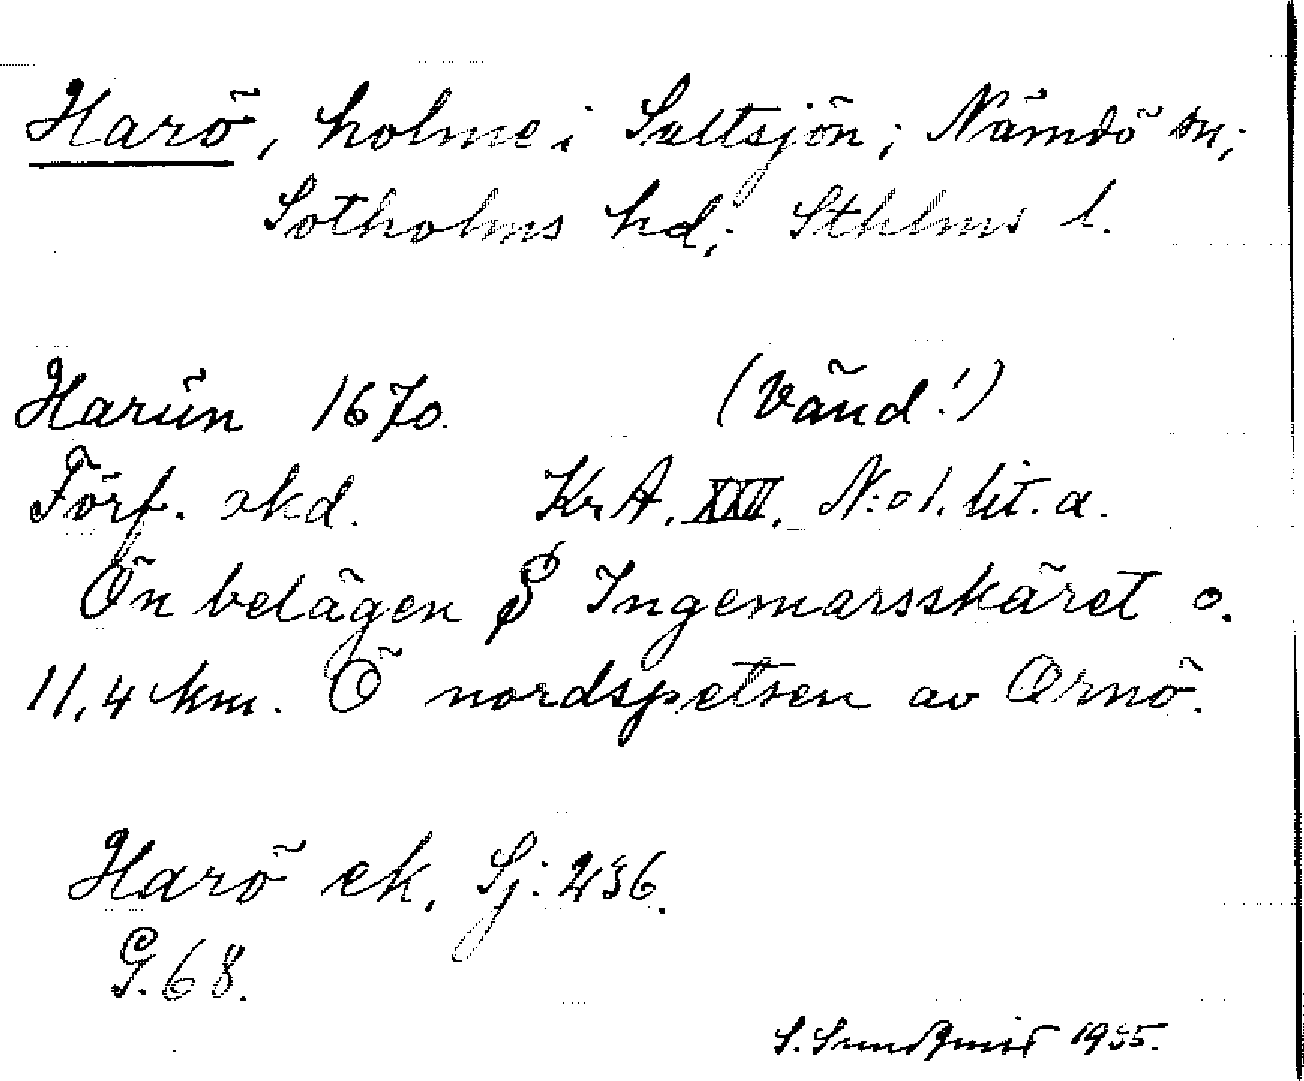 Harö, holme i Saltsjön; Nämdö sn;
Sotholms hd; Sthlms l.
Harün 1670. (Vänd!)
Förf. okd. Kr A. XXII. N:o 1. lit. a.
Ön belägen S Ingemarsskäret o.
11,4 km. Ö nordspetsen av Ornö.
Harö ek. Sj: 236.
G. 68.
S. Sundqvist 1935.